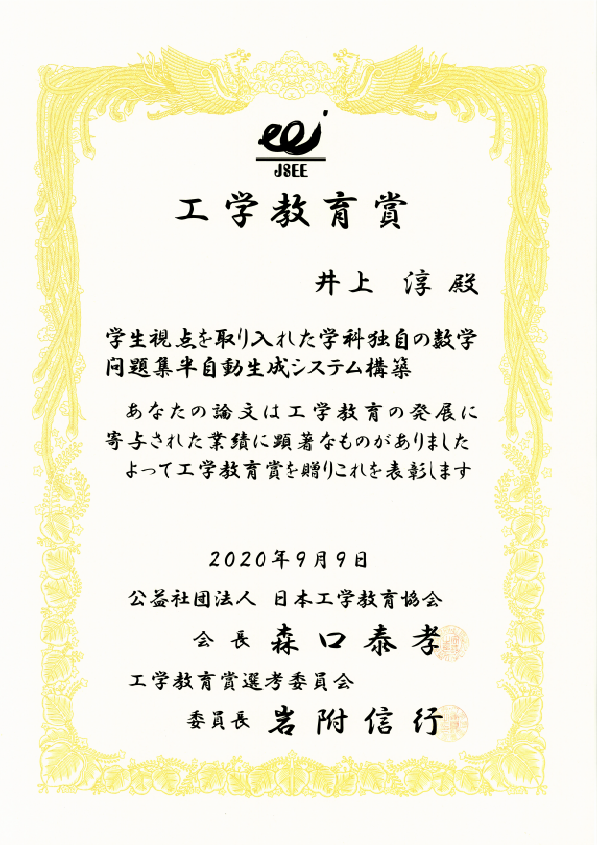 JSEE
工学教育賞
井上 淳 殿
学生視点を取り入れた学科独自の数学
問題集半自動生成システム構築
あなたの論文は工学教育の発展に
寄与された業績に顕著なものがありました
よって工学教育賞を贈りこれを表彰します
2020年9月9日
公益社団法人 日本工学教育協会
会長 森口泰孝
工学教育賞選考委員会
委員長 岩附信行